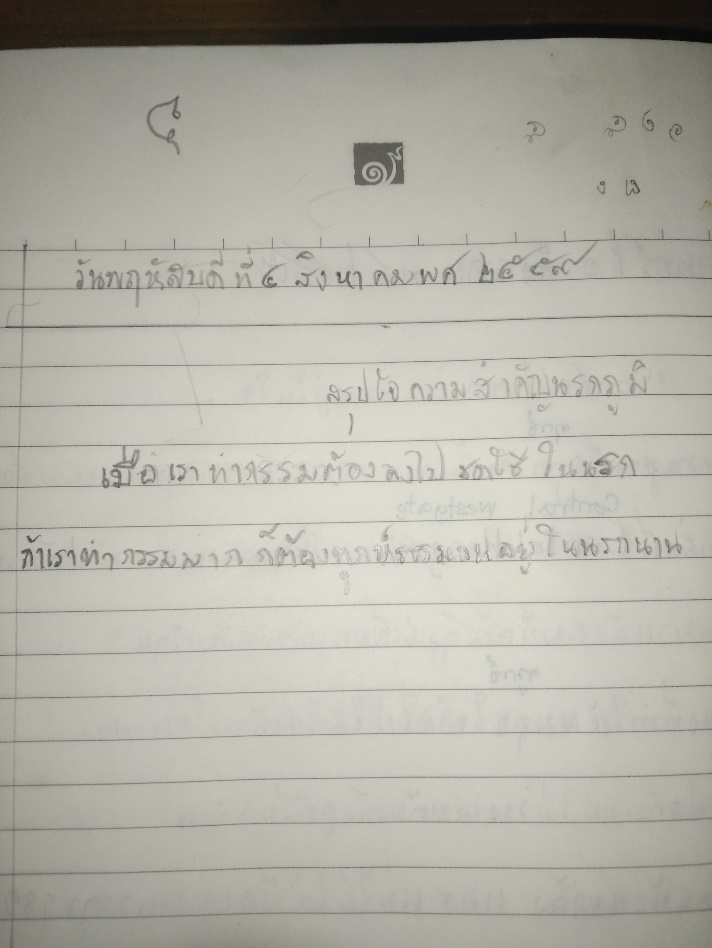 วันพฤหัสบดีที่ ๔ สิงหาคม พศ ๒๕๕๙
สรุปใจความสำคัญนรกภูมิ
เมื่อเราทำกรรมต้องลงไปชดใช้ในนรก
ถ้าเราทำกรรมมาก ก็ต้องทุกข์ทรมานอยู่ในนรกนาน